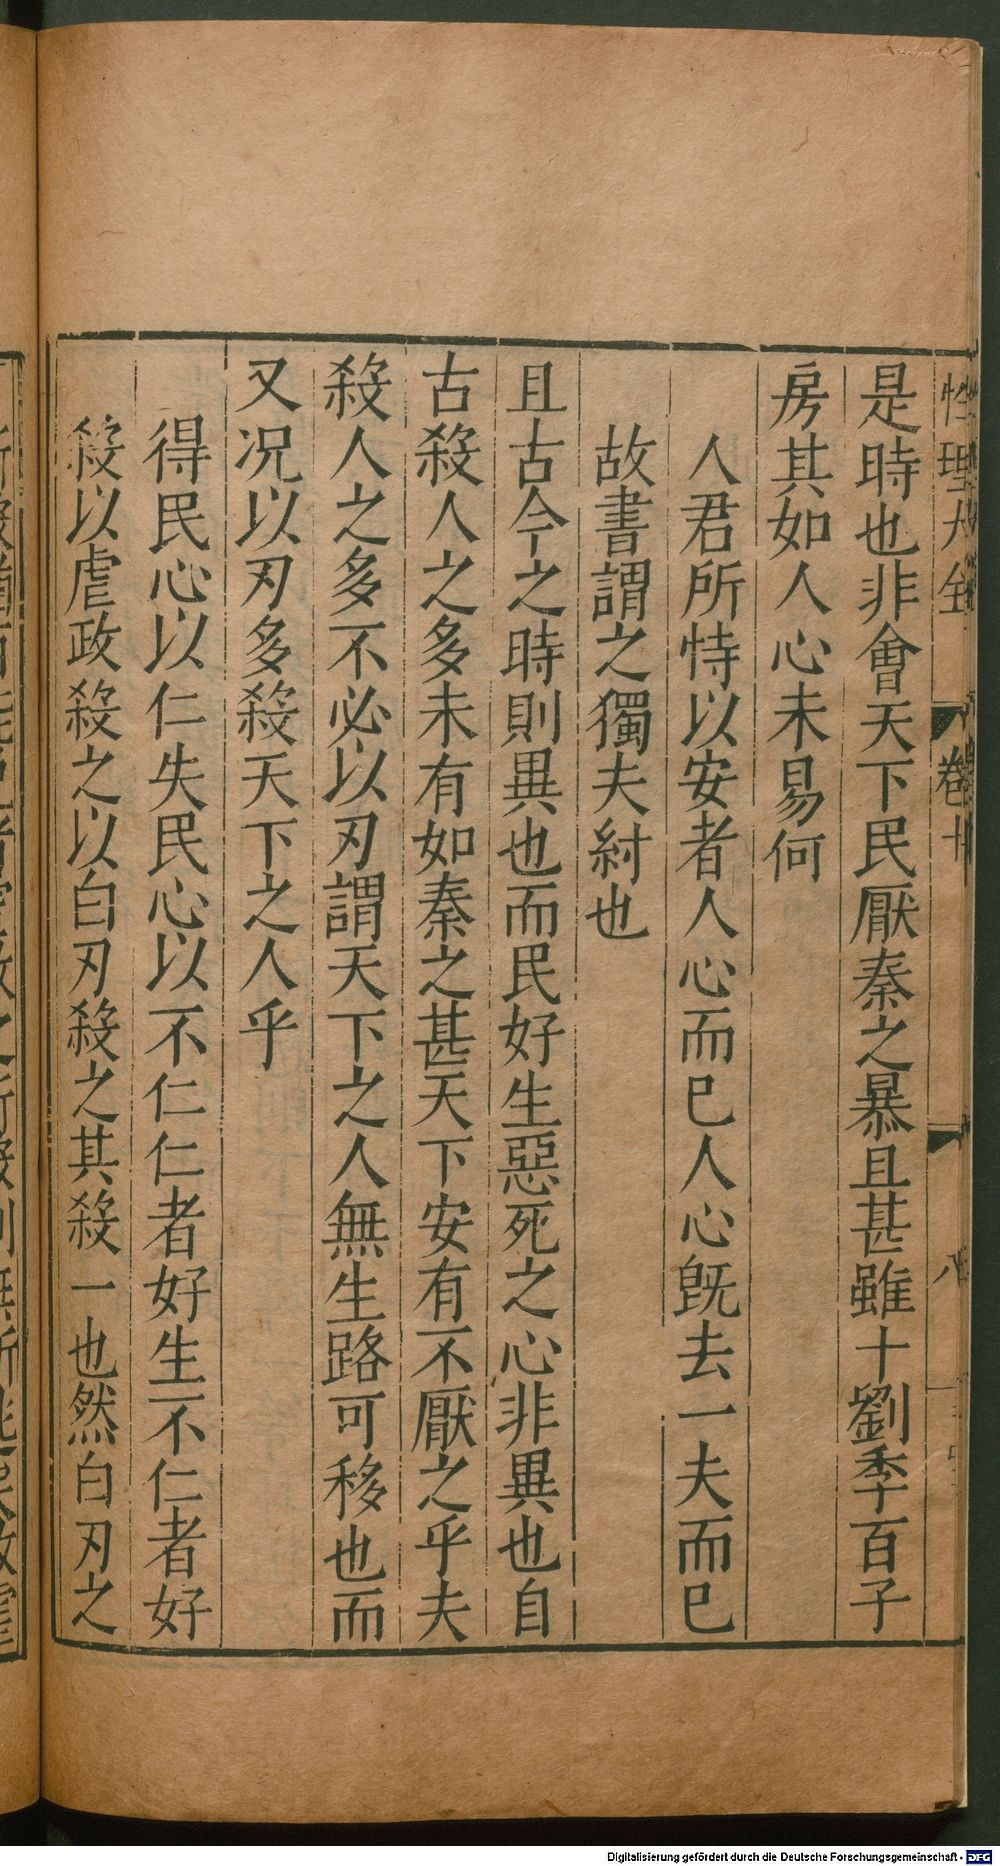 性理大全 卷十 八
是時也非會天下民厭秦之暴且甚雖十劉季百子
房其如人心未易何
人君所恃以安者人心而已人心旣去一夫而已
故書謂之獨夫紂也
且古今之時則異也而民好生惡死之心非異也自
古殺人之多未有如秦之甚天下安有不厭之乎夫
殺人之多不必以刃謂天下之人無生路可移也而
又况以刃多殺天下之人乎
得民心以仁失民心以不仁仁者好生不仁者好
殺以虐政殺之以白刃殺之其殺一也然白刃之
Digitalisierung gefördert durch die Deutsche Forschungsgemeinschaft - DFG